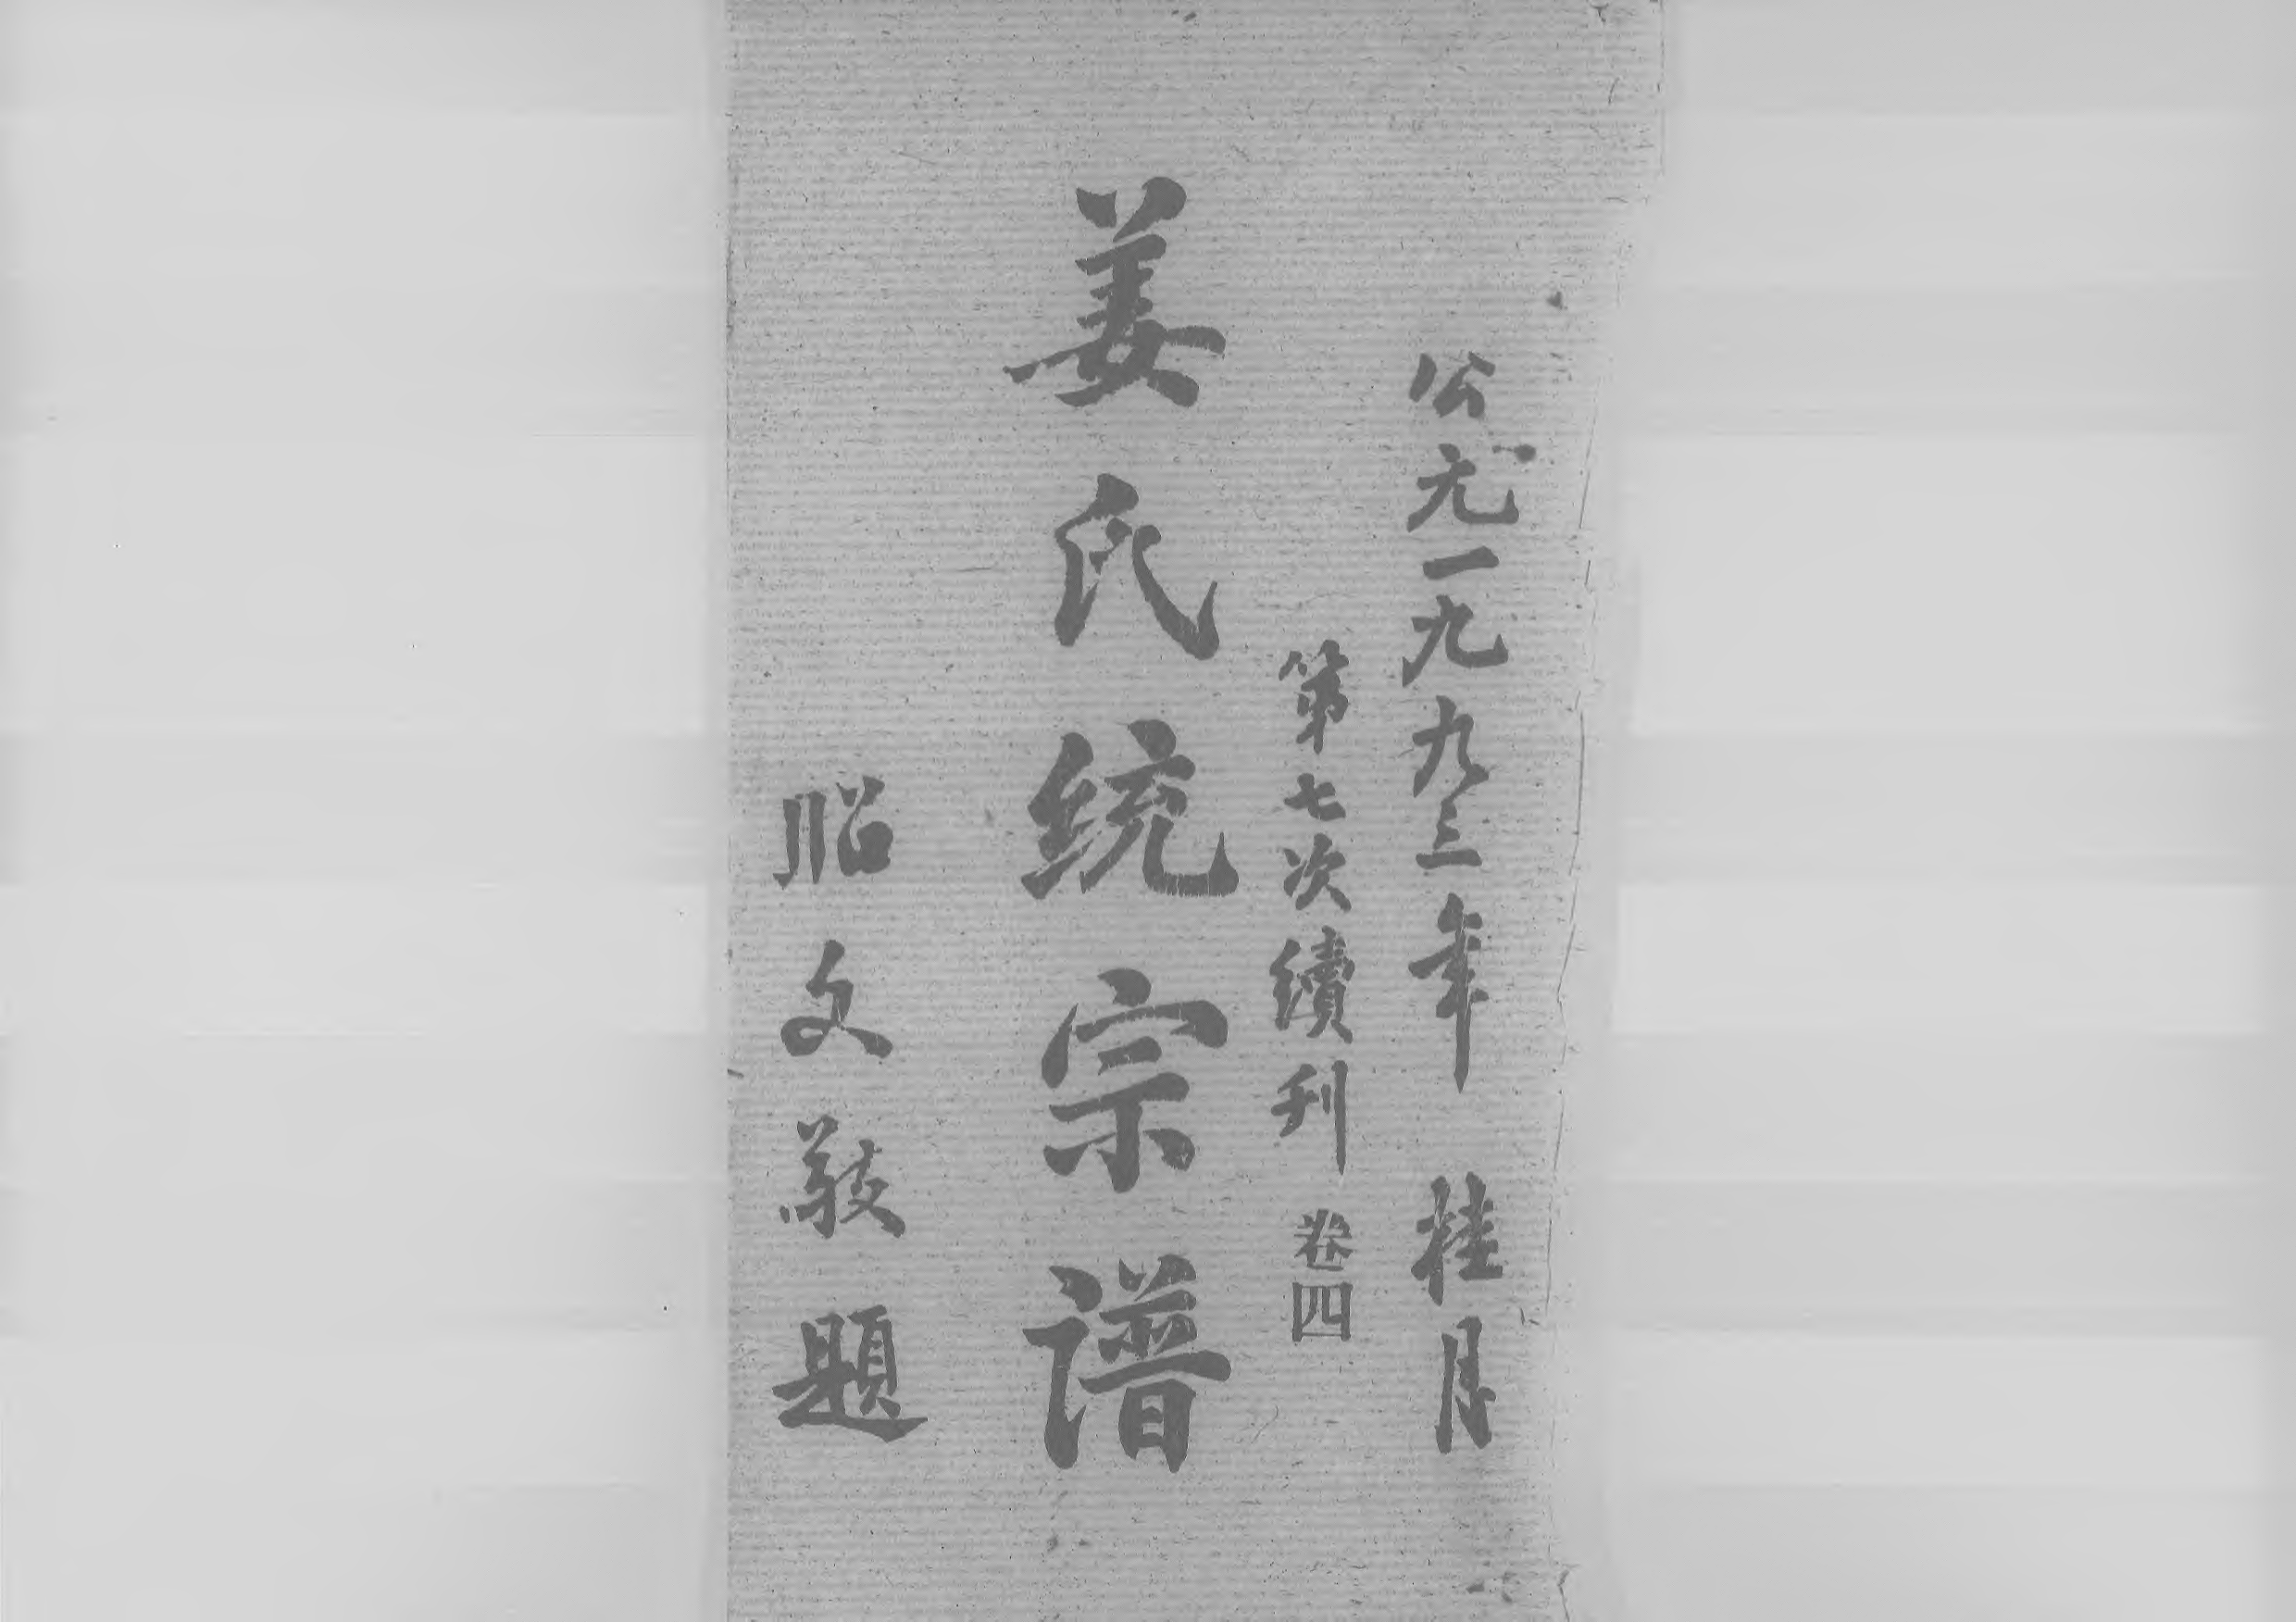 公元一九九三年 桂月
第七次續刊 卷四
姜氏統宗譜
昭文敬題